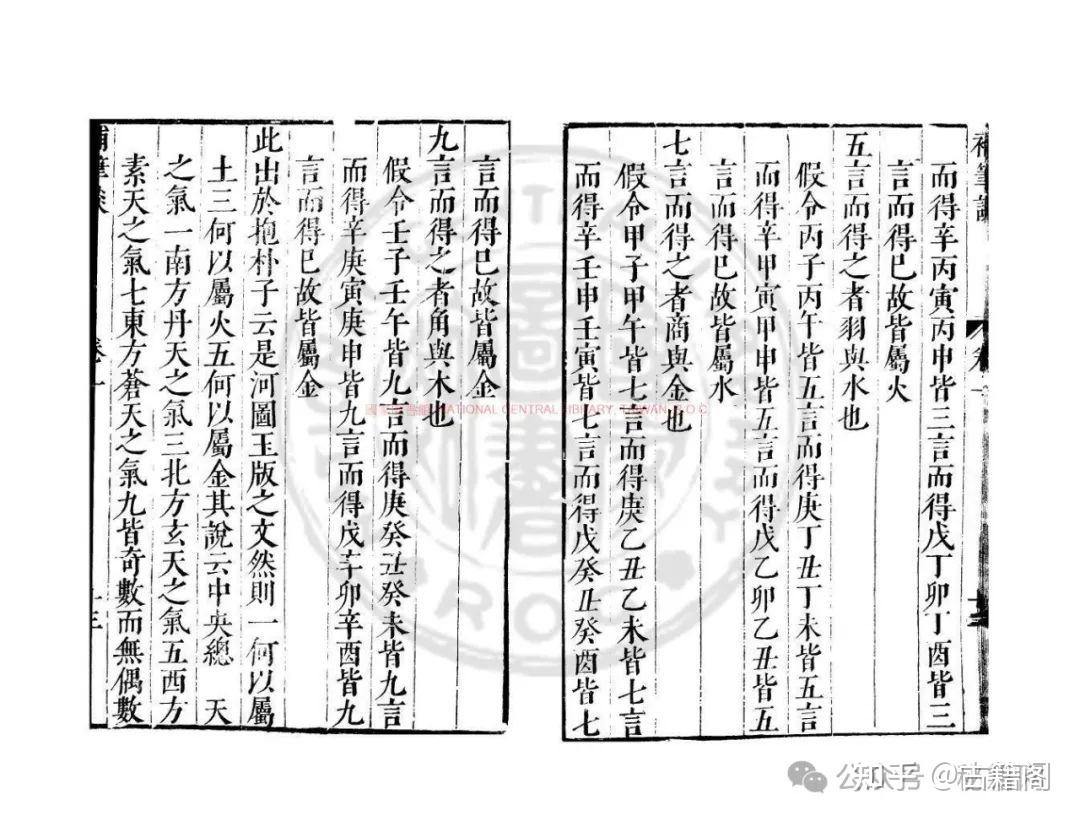 補筆談
卷一
而得辛丙寅丙申皆三言而得戊丁卯丁酉皆三
言而得巳故皆屬火
五言而得之者羽與水也
假令丙子丙午皆五言而得庚丁丑丁未皆五言
而得辛甲寅甲申皆五言而得戊乙卯乙丑皆五
言而得巳故皆屬水
七言而得之者商與金也
假令甲子甲午皆七言而得庚乙丑乙未皆七言
而得辛壬申壬寅皆七言而得戊癸丑癸酉皆七
言而得巳故皆屬金
九言而得之者角與木也
假令壬子壬午皆九言而得庚癸丑癸未皆九言
而得辛庚寅庚申皆九言而得戊辛卯辛酉皆九
言而得巳故皆屬金
此出於抱朴子云是河圖玉版之文然則一何以屬
土三何以屬火五何以屬金其說云中央總 天
之氣一南方丹天之氣三北方玄天之氣五西方
素天之氣七東方蒼天之氣九皆奇數而無偶數
補筆談
卷一
國家圖書館 NATIONAL CENTRAL LIBRARY, TAIWAN, R.O.C
知乎 @古籍阁